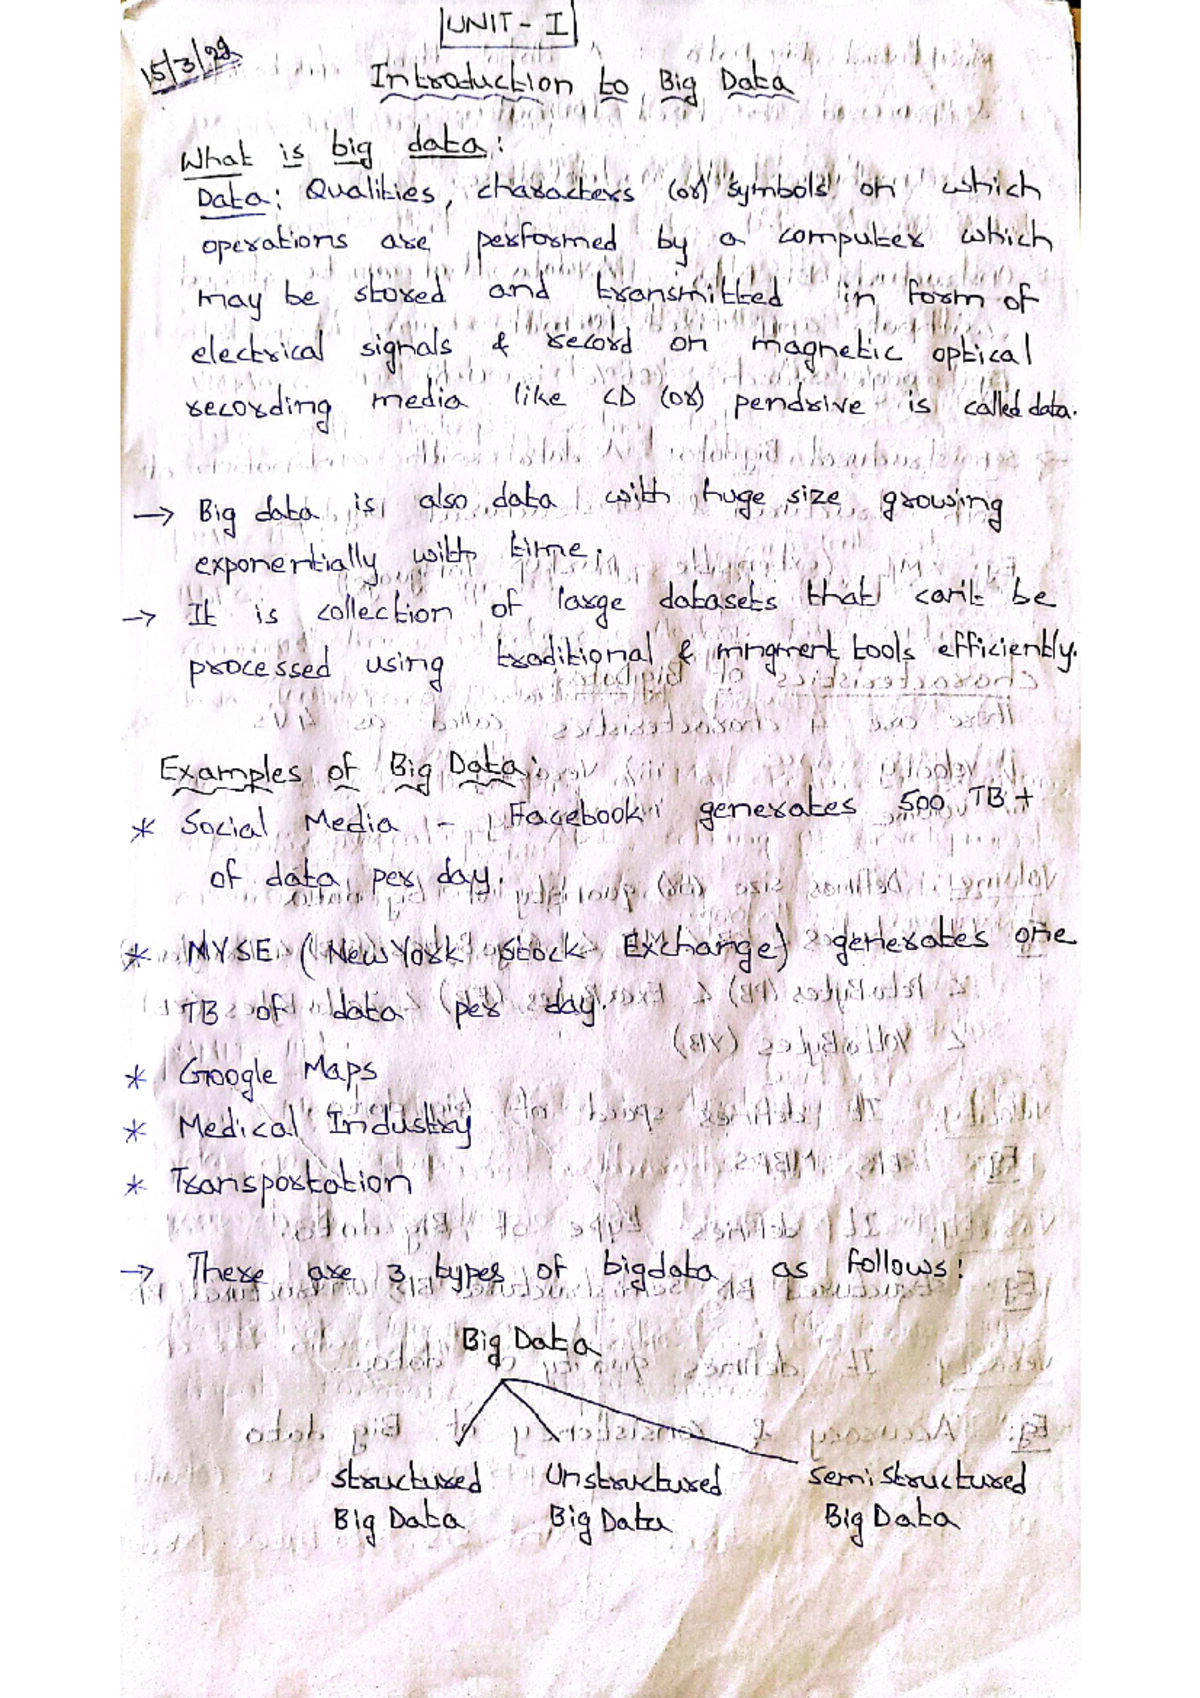 UNIT - I
15/3/22
Introduction to Big Data
What is big data:
Data: Qualities, characters (or) symbols on which
operations are performed by a computer which
may be stored and transmitted in form of
electrical signals & record on magnetic optical
recording media like CD (or) pendrive is called data.
→ Big data is also data with huge size growing
exponentially with time.
→ It is collection of large datasets that can't be
processed using traditional & mngment tools efficiently.
Examples of Big Data:
* Social Media - Facebook generates 500 TB+
of data per day.
* NYSE (New York Stock Exchange) generates one
TB of data per day.
* Google Maps
* Medical Industry
* Transportation
→ There are 3 types of bigdata as follows:
Big Data
Structured Unstructured Semi Structured
Big Data Big Data Big Data